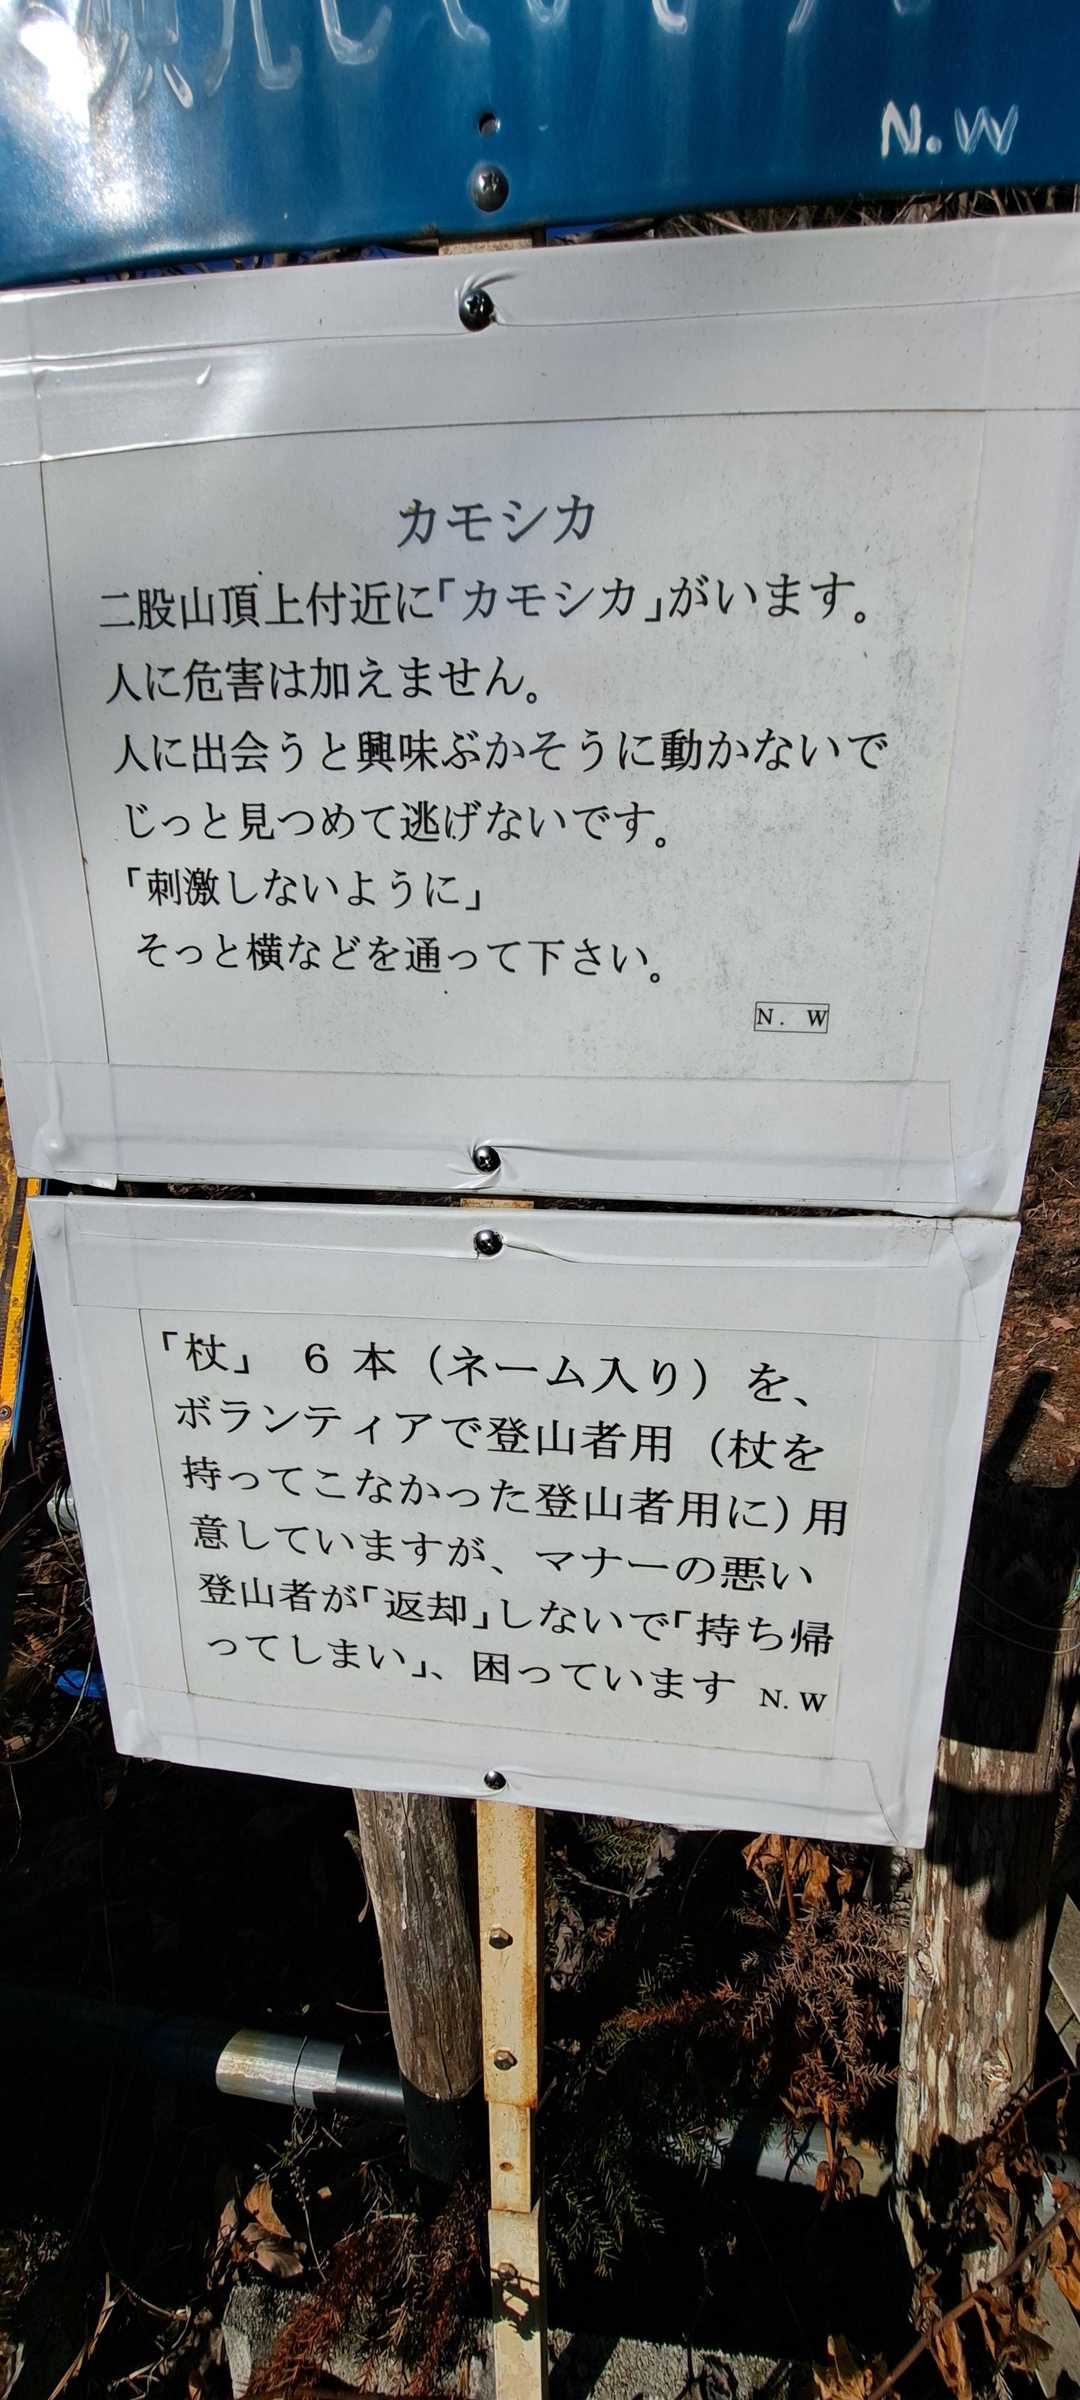 N.W
カモシカ
二股山頂上付近に「カモシカ」がいます。
人に危害は加えません。
人に出会うと興味ぶかそうに動かないで
じっと見つめて逃げないです。
「刺激しないように」
そっと横などを通って下さい。
N. W
「杖」 6 本（ネーム入り）を、
ボランティアで登山者用（杖を
持ってこなかった登山者用に）用
意していますが、マナーの悪い
登山者が「返却」しないで「持ち帰
ってしまい」、困っています N.W